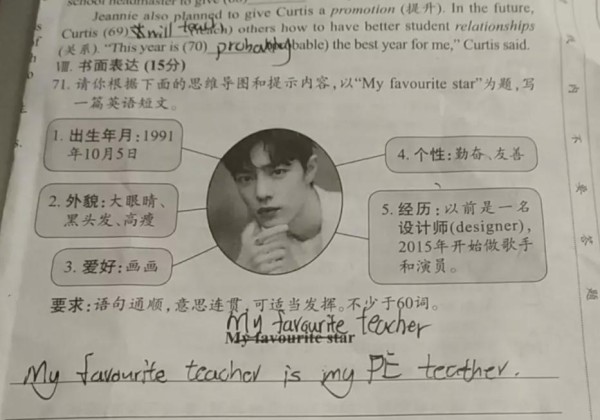 school headmaster to give (68)
Jeannie also planned to give Curtis a promotion (提升). In the future,
Curtis (69) will teach (teach) others how to have better student relationships
(关系). "This year is (70) probably (probable) the best year for me," Curtis said.
Ⅷ. 书面表达 (15分)
71. 请你根据下面的思维导图和提示内容,以"My favourite star"为题,写
一篇英语短文。
1. 出生年月:1991
年10月5日
2. 外貌:大眼睛、
黑头发、高瘦
3. 爱好:画画
4. 个性:勤奋、友善
5. 经历:以前是一名
设计师(designer),
2015年开始做歌手
和演员。
要求:语句通顺,意思连贯,可适当发挥。不少于60词。
My favourite teacher
My favourite star
My favourite teacher is my PE teather.
内
不
要
答
题